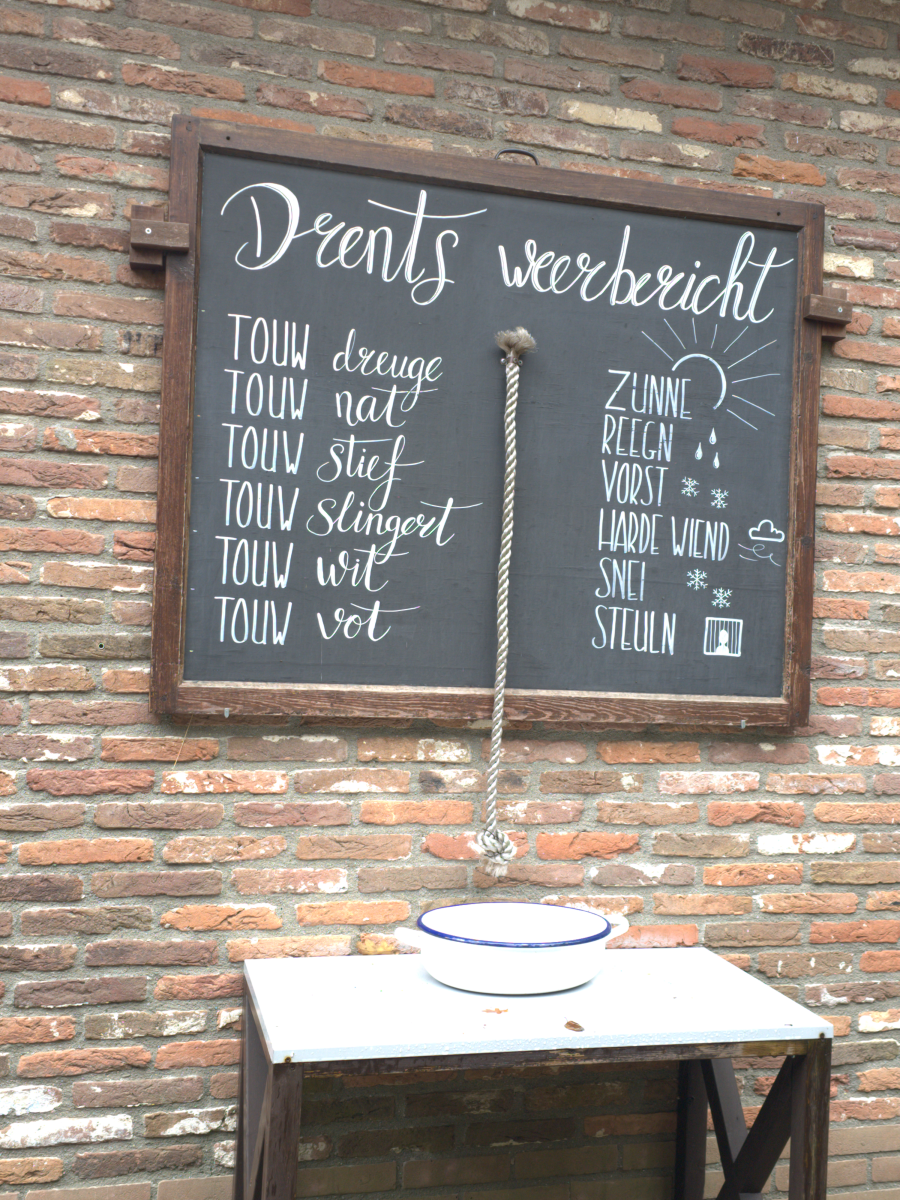 Drents weerbericht
TOUW dreuge ZUNNE
TOUW nat REEGN
TOUW stief VORST
TOUW slingert HARDE WIEND
TOUW wit SNEI
TOUW vot STEULN